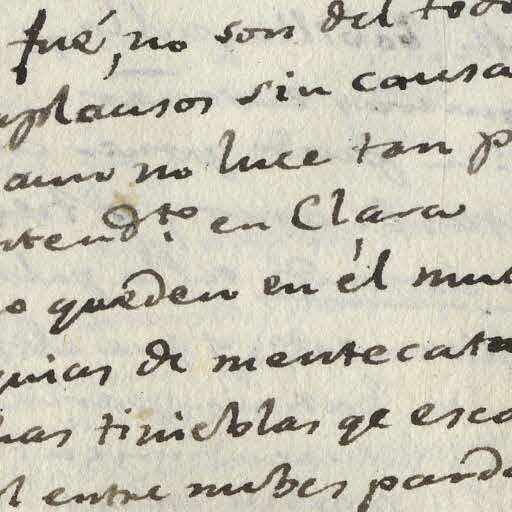 fué, no son del todo
aplausos sin causa
aun no luce tan p
ntendto. en Clara
o queden en él muc
quias de mentecata
has tinieblas qe esco
l entre nubes parda